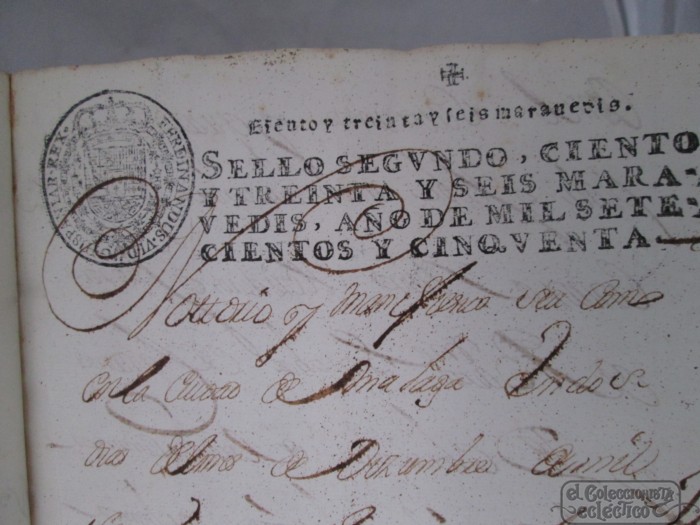 Ciento y treinta y seis maravedis.
SELLO SEGVNDO, CIENTO
Y TREINTA Y SEIS MARA-
VEDIS, AÑO DE MIL SETE-
CIENTOS Y CINQVENTA
HISP. ET IAR. REX. FERDINANDUS. VI. D.
Nottorio y Manifiesto sea Como
en la Ciudad de Malaga en dose
dias del mes de Diziembre de mill
el Coleccionista
ecléctico